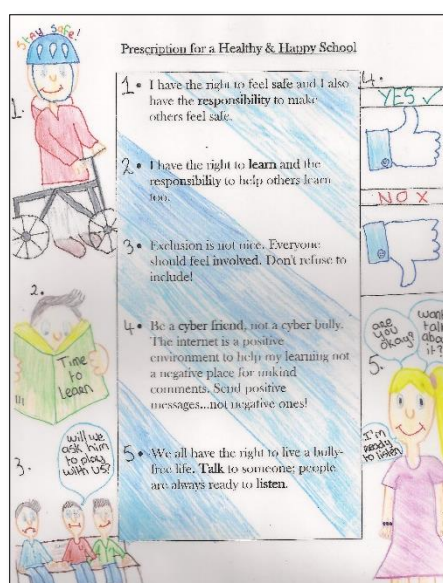 Stay Safe!
Prescription for a Healthy & Happy School
1.
1. I have the right to feel safe and I also
have the responsibility to make
others feel safe.
2. I have the right to learn and the
responsibility to help others learn
too.
3. Exclusion is not nice. Everyone
should feel involved. Don't refuse to
include!
4. Be a cyber friend, not a cyber bully.
The internet is a positive
environment to help my learning not
a negative place for unkind
comments. Send positive
messages...not negative ones!
5. We all have the right to live a bully-
free life. Talk to someone; people
are always ready to listen.
2.
Time
to
Learn
3.
will we
ask him
to play
with us?
4.
YES ✓
NO X
5.
are
you
okay?
want
talk
abo
it?
I'm
Ready
to listen